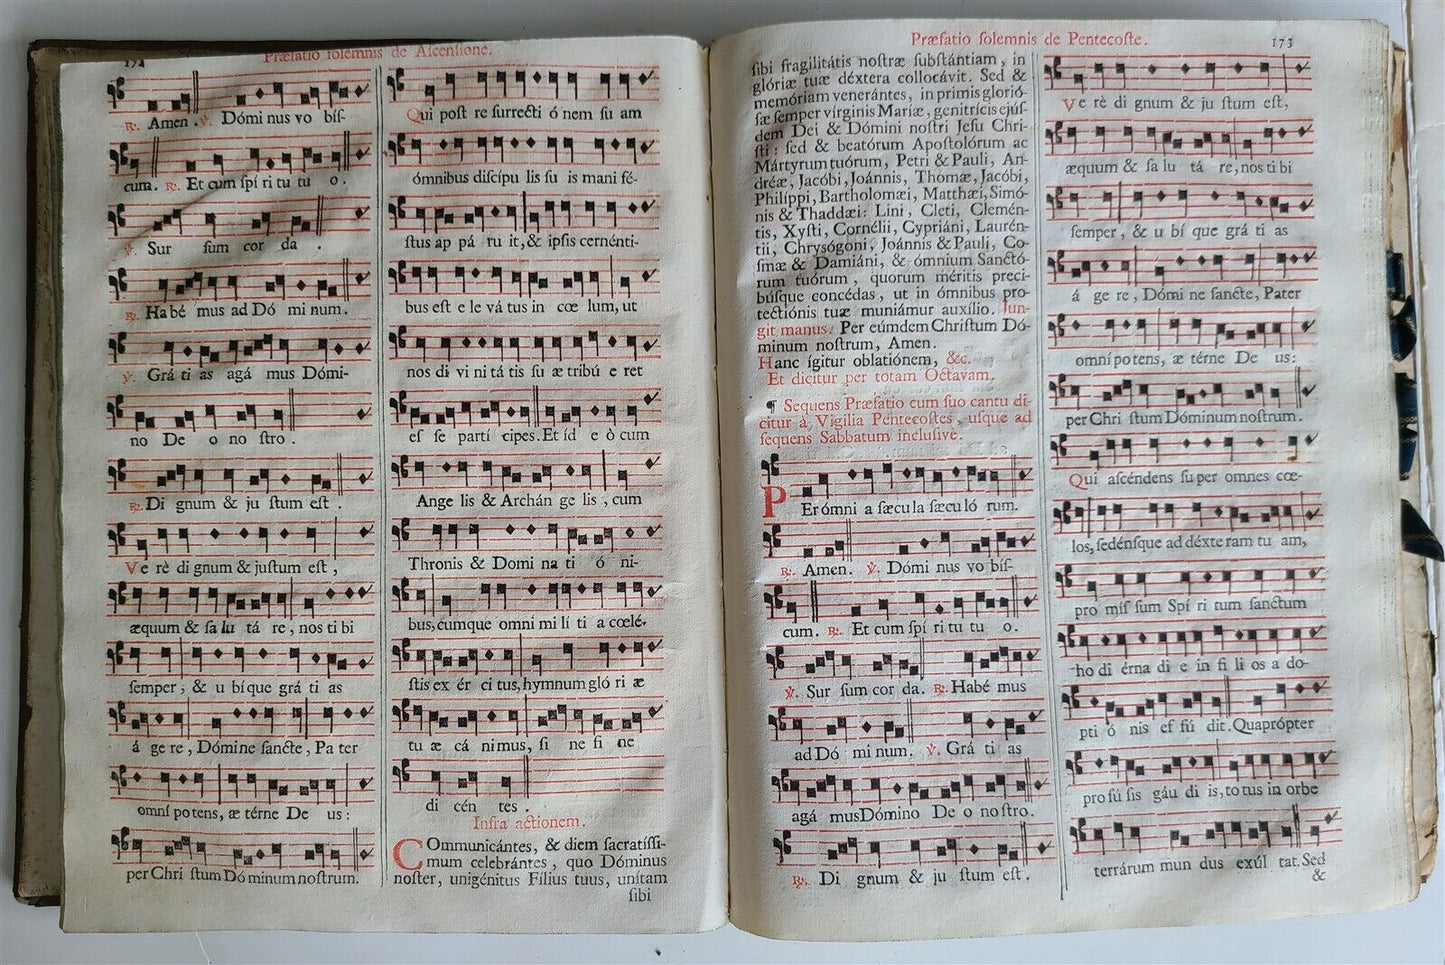 172
Præfatio solemnis de Ascensione.
℟. Amen. ℣. Dómi nus vo biſ-
cum. ℟. Et cum ſpí ri tu tu o.
℣. Sur ſum cor da .
℟. Habé mus ad Dó mi num.
℣. Grá ti as agá mus Dómi-
no De o no ſtro.
℟. Di gnum & ju ſtum eſt .
Ve rè di gnum & juſtum eſt ,
æquum & ſa lu tá re, nos ti bi
ſemper, & u bíque grá ti as
á ge re, Dómine ſancte, Pa ter
omní po tens, æ térne De us:
per Chri ſtum Dó minum noſtrum.
Qui poſt re ſurrecti ó nem ſu am
ómnibus diſcípu lis ſu is mani fé-
ſtus ap pá ru it, & ipſis cernénti-
bus eſt e le vá tus in cœ lum, ut
nos di vi ni tá tis ſu æ tribú e ret
eſ ſe partí cipes. Et íd e ò cum
Ange lis & Archán ge lis , cum
Thronis & Domi na ti ó ni-
bus, cumque omni mi lí ti a cœlé-
ſtis ex ér ci tus, hymnum gló ri æ
tu æ cá nimus, ſi ne fi ne
di cén tes .
Infra actionem.
COmmunicántes, & diem ſacratíſſi-
mum celebrántes , quo Dóminus
noſter, unigénitus Fílius tuus, unítam
ſibi
Præfatio ſolemnis de Pentecoſte.
173
ſibi fragilitátis noſtræ ſubſtántiam, in
glóriæ tuæ déxtera collocávit. Sed &
memóriam venerántes, in primis glorió-
ſæ ſemper vírginis Mariæ, genitrícis ejúſ-
dem Dei & Dómini noſtri Jeſu Chri-
ſti: ſed & beatórum Apoſtolórum ac
Mártyrum tuórum, Petri & Pauli, An-
dréæ, Jacóbi, Joánnis, Thomæ, Jacóbi,
Philíppi, Bartholomæi, Matthæi, Simó-
nis & Thaddæi: Lini, Cleti, Clemén-
tis, Xyſti, Cornélii, Cypriáni, Laurén-
tii, Chryſógoni, Joánnis & Pauli, Co-
ſmæ & Damiáni, & ómnium Sanctó-
rum tuórum, quorum méritis preci-
búſque concédas, ut in ómnibus pro-
tectiónis tuæ muniámur auxílio. Jun-
git manus. Per eúmdem Chriſtum Dó-
minum noſtrum, Amen.
Hanc ígitur oblatiónem, &c.
Et dicitur per totam Octavam.
¶ Sequens Præfatio cum ſuo cantu di-
citur à Vigilia Pentecoſtes, uſque ad
ſequens Sabbatum incluſive.
PErómni a ſæcu la ſæcu ló rum.
℟. Amen. ℣. Dómi nus vo biſ-
cum. ℟. Et cum ſpí ri tu tu o.
℣. Sur ſum cor da. ℟. Habé mus
ad Dó mi num. ℣. Grá ti as
agá mus Dómino De o noſtro.
℟. Di gnum & ju ſtum eſt.
Ve rè di gnum & ju ſtum eſt,
æquum & ſa lu tá re, nos ti bi
ſemper, & u bí que grá ti as
á ge re, Dómi ne ſancte, Pater
omní po tens, æ térne De us:
per Chri ſtum Dóminum noſtrum.
Qui aſcéndens ſu per omnes cœ-
los, ſedénſque ad déxte ram tu am,
pro míſ ſum Spí ri tum ſanctum
ho di érna di e in fí li os a do-
pti ó nis ef fú dit. Quaprópter
pro fú ſis gáu di is, to tus in orbe
terrárum mun dus exúl tat. Sed
&